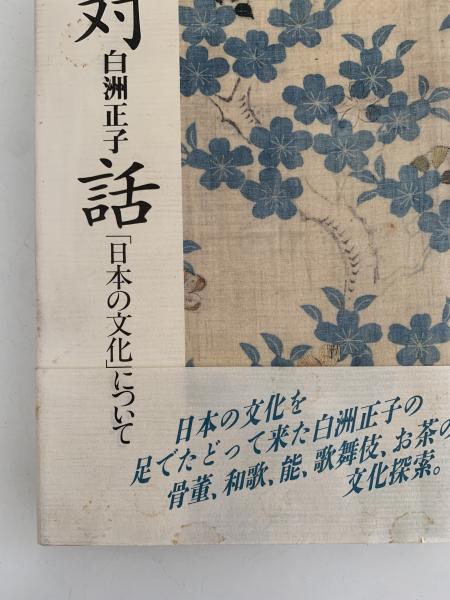 対話
白洲正子
「日本の文化」について
日本の文化を
足でたどって来た白洲正子の
骨董、和歌、能、歌舞伎、お茶の
文化探索。